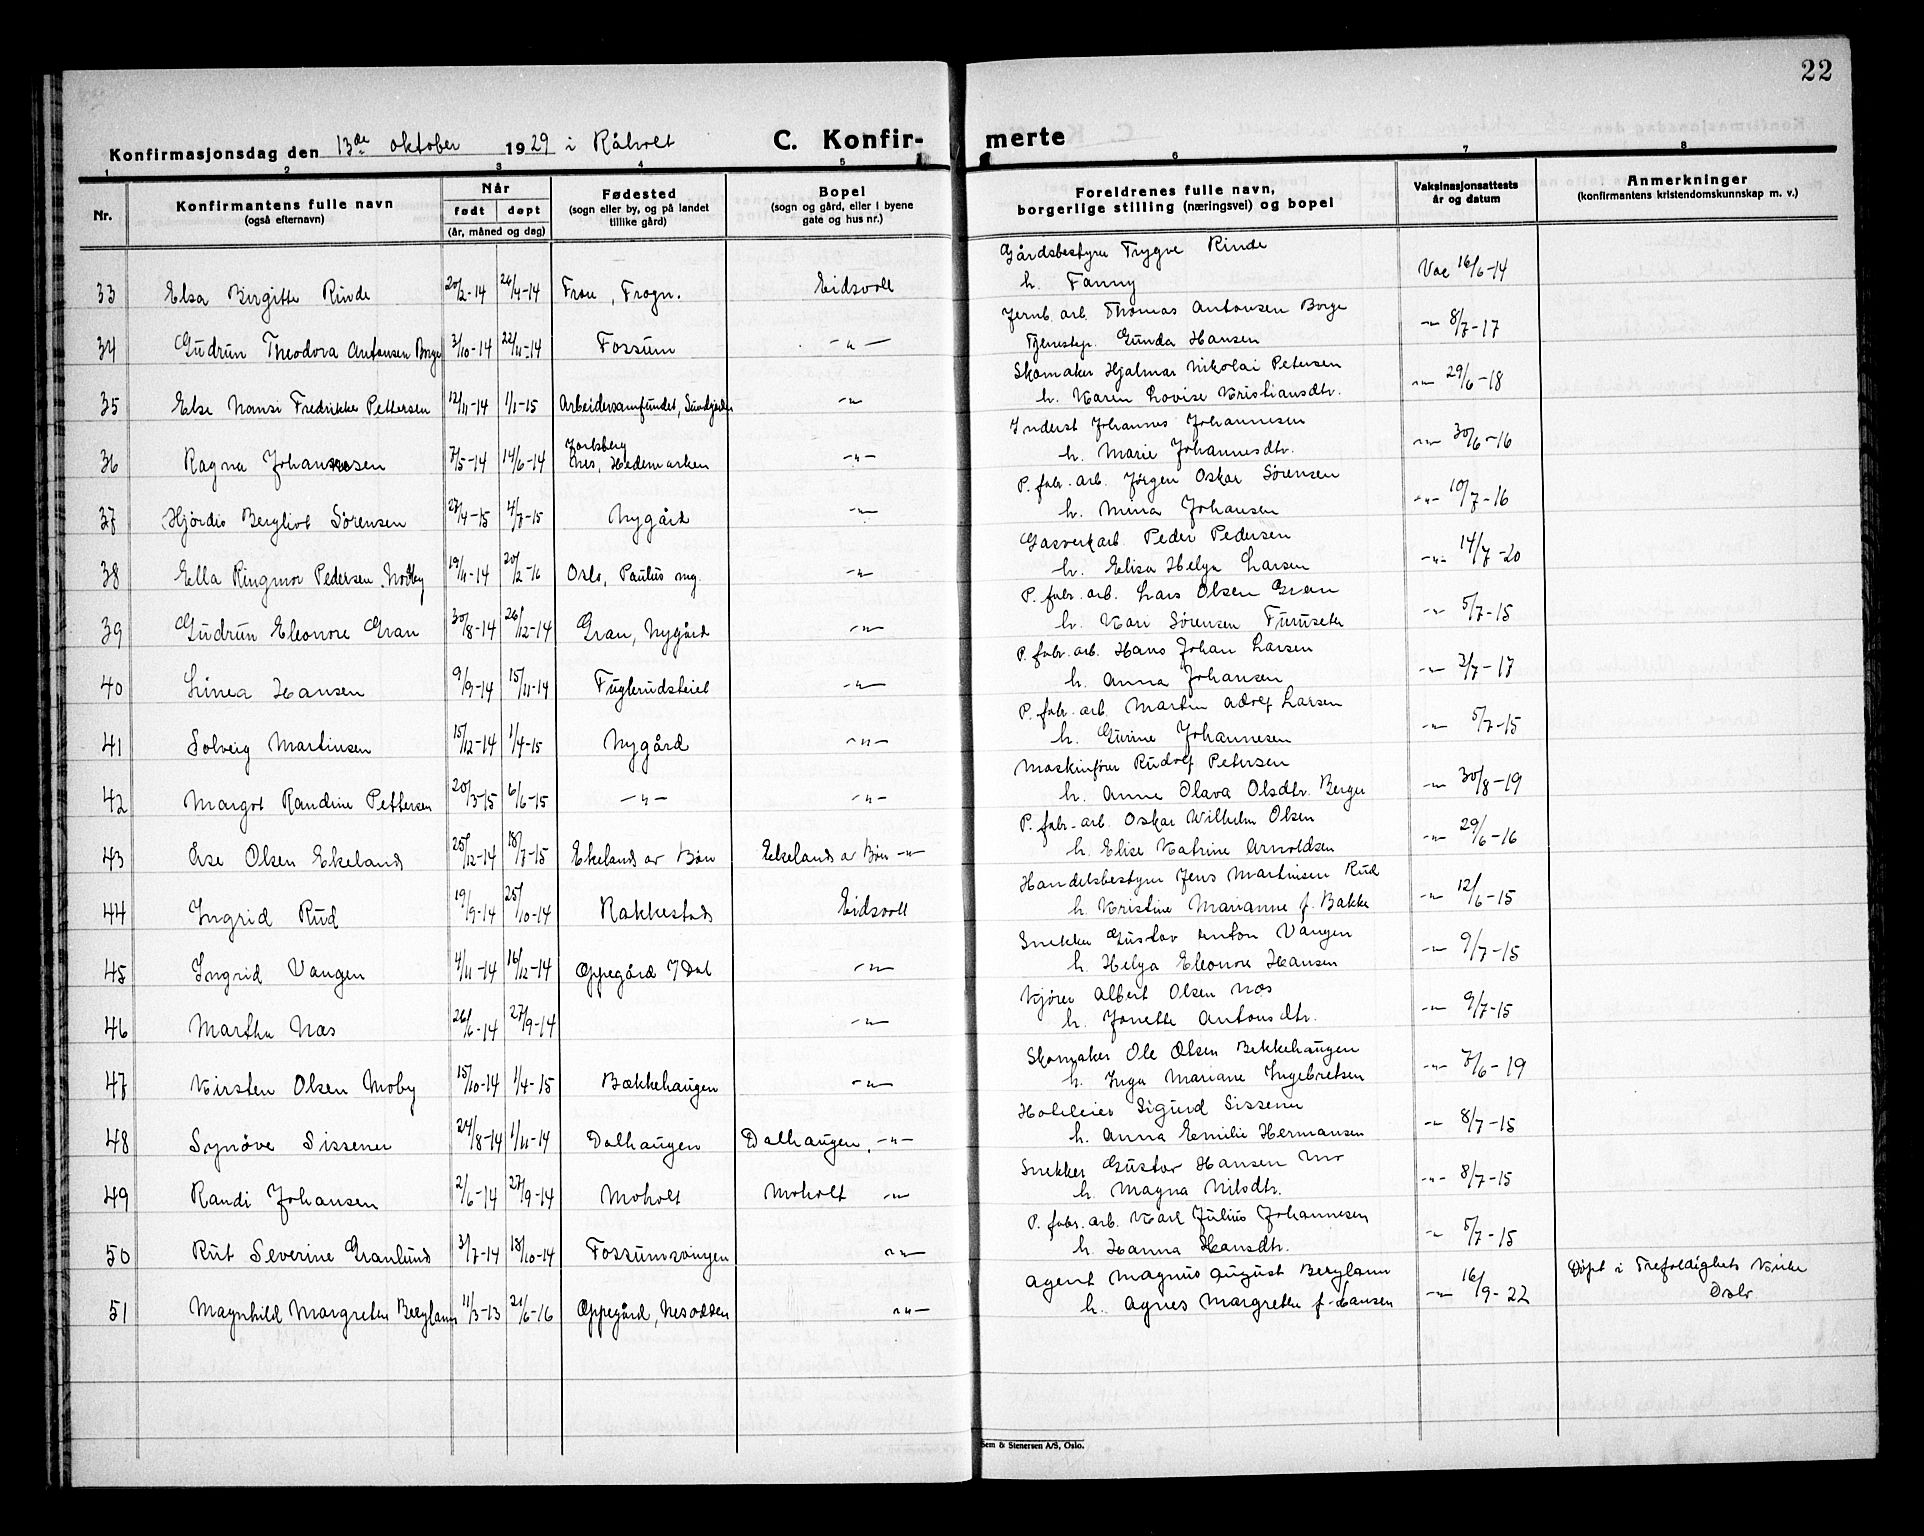 22
Konfirmasjonsdag den 13de oktober 1929 i Råholt C. Konfirmerte
1 2 3 4 5 6 7 8
Nr. Konfirmantens fulle navn (også efternavn) Når født døpt (år, måned og dag) Fødested (sogn eller by, og på landet tillike gård) Bopel (sogn og gård, eller i byene gate og hus nr.) Foreldrenes fulle navn, borgerlige stilling (næringsvei) og bopel Vaksinasjonsattests år og datum Anmerkninger (konfirmantens kristendomskunnskap m. v.)
Gårdsbestyrer Trygve Rinde
33 Elsa Birgitte Rinde 20/2-14 26/4-14 Fron, Frogn. Eidsvoll h. Fanny Vac 16/6-14
Jernb. arb. Thomas Antonsen Borge
34 Gudrun Theodora Antonsen Borge 3/10-14 22/11-14 Fossum -"- Tjenestpr. Gunda Hansen -"- 8/7-17
Skomaker Hjalmar Nikolai Petersen
35 Else Nansi Fredrikke Pettersen 12/11-14 1/1-15 Arbeidersamfundet, Sundgården -"- h. Karen Lovise Kristiansdtr. -"- 29/6-18
Inderst Johannes Johannesen
36 Ragna Johannesen 7/5-14 14/6-14 Jarlsberg Nes, Hedemarken -"- h. Marie Johannesdtr. -"- 30/6-16
P. fabr. arb. Jørgen Oskar Sørensen
37 Hjørdis Bergliot Sørensen 27/4-15 4/7-15 Nygård -"- h. Mina Johansen -"- 10/7-16
Gasverkarb. Peder Pedersen
38 Ella Ringmor Pedersen Nordby 19/11-14 20/2-16 Oslo, Paulus mg. -"- h. Elisa Helga Larsen -"- 14/7-20
P. fabr. arb. Lars Olsen Gran
39 Gudrun Eleonore Gran 30/8-14 26/12-14 Gran, Nygård -"- h. Kari Sørensen Furuseth -"- 5/7-15
P. fabr. arb. Hans Johan Larsen
40 Linea Hansen 9/9-14 15/11-14 Fuglerudsteiet -"- h. Anna Johansen -"- 3/7-17
P. fabr. arb. Martin Adolf Larsen
41 Solveig Martinsen 15/12-14 1/4-15 Nygård -"- h. Gurine Johannesen -"- 5/7-15
Maskinfører Rudolf Petersen
42 Margot Randine Pettersen 20/3-15 6/6-15 -"- -"- h. Anne Olava Olsdtr. Berger -"- 30/8-19
P. fabr. arb. Oskar Wilhelm Olsen
43 Åse Olsen Ekeland 25/12-14 18/7-15 Ekeland av Bøn Ekeland av Bøn -"- h. Elise Katrine Arnoldsen -"- 29/6-16
Handelsbestyrer Jens Martinisen Rud
44 Ingrid Rud 19/9-14 25/10-14 Rakkestad Eidsvoll h. Kristine Marianne f. Bakke -"- 12/6-15
Snekker Gustav Anton Vangen
45 Ingrid Vangen 4/11-14 16/12-14 Oppegård i Dal -"- h. Helga Eleonore Hansen -"- 9/7-15
Kjører Albert Olsen Nas
46 Martha Nas 26/6-14 27/9-14 -"- h. Jonette Antonsdtr. -"- 9/7-15
Skomaker Ole Olsen Bekkehaugen
47 Kirsten Olsen Moby 15/10-14 1/4-15 Bækkehaugen -"- h. Inga Mariane Ingebretsen -"- 7/6-19
Holeieier Sigurd Sissener
48 Synöve Sissener 24/8-14 1/11-14 Dalhaugen Dalhaugen. -"- h. Anna Emilie Hermansen -"- 8/7-15
Snekker Gustav Hansen Mo
49 Randi Johansen 2/6-14 27/9-14 Moholt Moholt -"- h. Magna Nilsdtr. -"- 8/7-15
P. fabr. arb. Karl Julius Johannesen
50 Rut Severine Granlund 3/7-14 18/10-14 Fossumsvingen -"- h. Hanna Hansdtr. -"- 5/7-15
Agent Magnus August Bergland Døpt i Trefoldighets Kirke
51 Magnhild Margrethe Bergland 11/3-13 21/6-16 Oppegård, Nesodden -"- h. Agnes Margrethe f. Hansen -"- 16/9-22 Oslo
Sem & Stenersen A/S, Oslo.